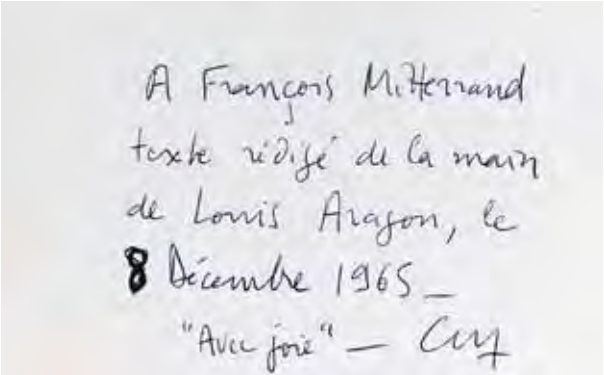 A François Mitterrand
texte rédigé de la main
de Louis Aragon, le
8 Décembre 1965 –
"Avec joie" –